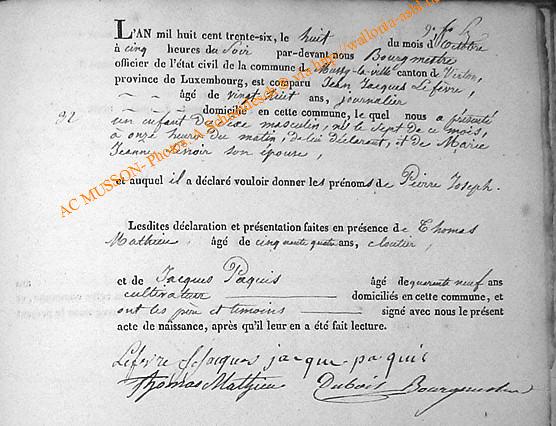 L'AN mil huit cent trente-six, le huit du mois d'Octobre
à cinq heures du Soir par-devant nous Bourgmestre
officier de l'état civil de la commune de Mussy-la-ville canton de Virton,
province de Luxembourg, est comparu Jean Jacques Lefèvre,
âgé de vingt huit ans, journalier
domicilié en cette commune, le quel nous a présenté
92
un enfant de sexe masculin, né le Sept de ce mois,
à onze heure du matin, de lui déclarant, et de Marie
Jeanne son épouse,
et auquel il a déclaré vouloir donner les prénoms de Pierre Joseph.
Lesdites déclaration et présentation faites en présence de Thomas
Mathieu, âgé de cinquante quatre ans, cloutier,
et de Jacques Paquis âgé de quarente neuf ans
cultivateur domiciliés en cette commune, et
ont les père et temoins signé avec nous le présent
acte de naissance, après qu'il leur en a été fait lecture.
Lefevre J Jacques jacque paquis
Thomas Mathieu Dubois Bourgmestre
AC MUSSON- Photos A Schandeseck © via http://wallonia-asbl